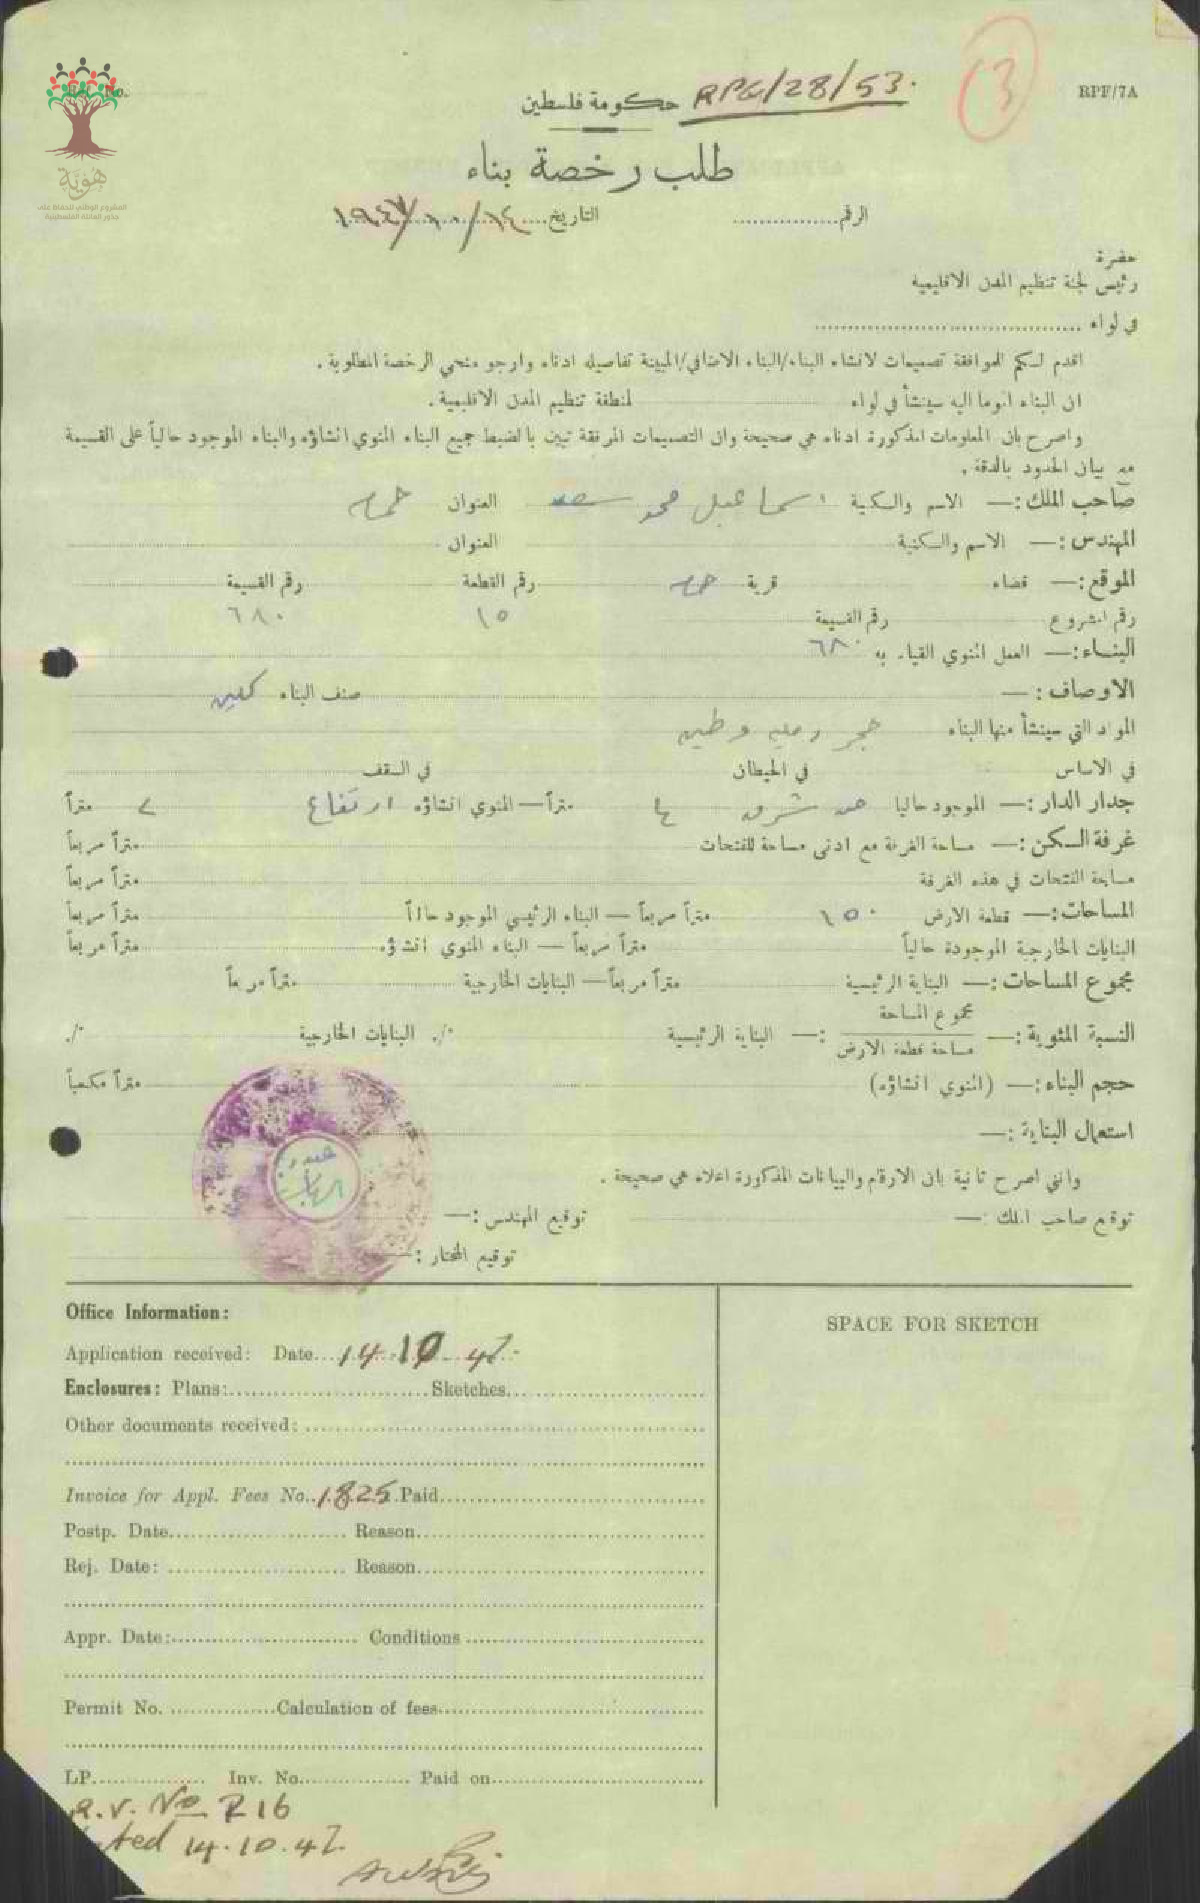 RPG/28/53.
RPF/7A
No.
هوية
المشروع الوطني للحفاظ على
جذور العائلة الفلسطينية
حكومة فلسطين
طلب رخصة بناء
الرقم................ التاريخ....١٤/١٠/١٩٤٧
حضرة
رئيس لجنة تنظيم المدن الاقليمية
في لواء ........................................
اقدم لكم للموافقة تصميمات لانشاء البناء/البناء الاضافي/المبينة تفاصيله ادناه وارجو منحي الرخصة المطلوبة .
ان البناء الموما اليه سينشأ في لواء لمنطقة تنظيم المدن الاقليمية .
واصرح بان المعلومات المذكورة ادناه هي صحيحة وان التصميمات المرفقة تبين بالضبط جميع البناء المنوي انشاؤه والبناء الموجود حالياً على القسيمة
مع بيان الحدود بالدقة .
صاحب الملك :— الاسم والكنية اسماعيل محمد سعد العنوان
المهندس :— الاسم والكنية العنوان
الموقع :— قضاء قرية رقم القطعة رقم القسيمة
رقم المشروع رقم القسيمة ١٥ ٦٨٠
البناء :— العمل المنوي القيام به ٦٨٠
الاوصاف :— صنف البناء
المواد التي سينشأ منها البناء حجر وطين
في الاساس في الحيطان في السقف
جدار الدار :— الموجود حاليا متراً — المنوي انشاؤه ارتفاع ٢ متراً
غرفة السكن :— مساحة الغرفة مع ادنى مساحة للفتحات متراً مربعاً
مساحة الفتحات في هذه الغرفة متراً مربعاً
المساحات :— قطعة الارض ١٥٠ متراً مربعاً — البناء الرئيسي الموجود حالاً متراً مربعاً
البنايات الخارجية الموجودة حالياً متراً مربعاً — البناء المنوي انشاؤه متراً مربعاً
مجموع المساحات :— البناية الرئيسية متراً مربعاً — البنايات الخارجية متراً مربعاً
مجموع المساحة
النسبة المئوية :— :— البناية الرئيسية ٠/. البنايات الخارجية ٠/.
مساحة قطعة الارض
حجم البناء :— (المنوي انشاؤه) متراً مكعباً
استعمال البناية :—
وانني اصرح ثانية بان الارقام والبيانات المذكورة اعلاه هي صحيحة .
توقيع صاحب الملك :— توقيع المهندس :—
توقيع المختار :—
Office Information:
SPACE FOR SKETCH
Application received: Date...14.10.47.
Enclosures: Plans:..........................Sketches..........................
Other documents received: ..........................
Invoice for Appl. Fees No..1825.Paid..........................
Postp. Date.......................... Reason..........................
Rej. Date: .......................... Reason..........................
Appr. Date:.......................... Conditions ..........................
Permit No. ................Calculation of fees..........................
LP................. Inv. No................. Paid on..........................
R.V. No 216
14.10.47.